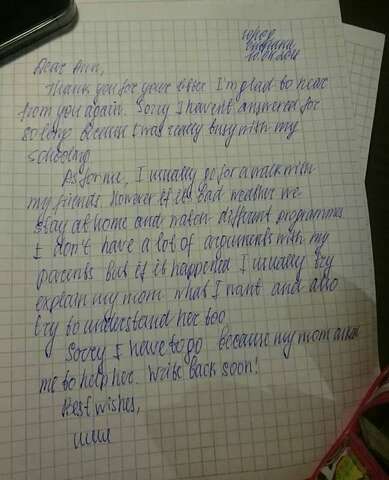 Dear Ann,
Thank you for your letter. I'm glad to hear
from you again. Sorry I haven't answered for
so long because I was really busy with my
schooling.
As for me, I usually go for a walk with
my friends. However if it's bad weather we
stay at home and watch different programmes.
I don't have a lot of arguments with my
parents but if it happened I usually try
explain my mom what I want and also
try to understand her too.
Sorry I have to go because my mom
me to help her. Write back soon!
Best wishes,